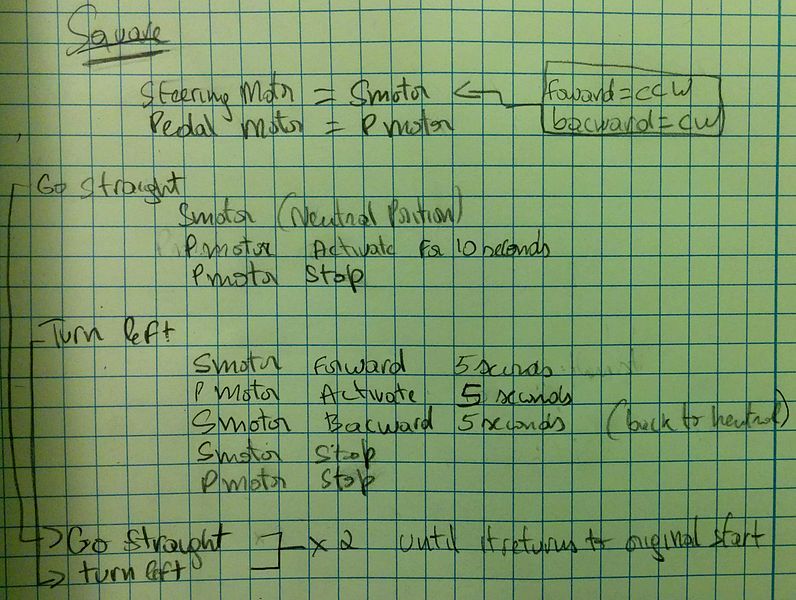 Square
Steering Motor = Smotor
Pedal motor = P motor
foward = ccw
bacward = cw
Go straught
Smotor (Neutral Position)
P motor Activate For 10 seconds
P motor Stop
Turn left
Smotor Forward 5 seconds
P Motor Activate 5 seconds
Smotor Bacward 5 seconds (back to neutral)
Smotor Stop
Pmotor Stop
Go straught
turn left
x 2 until it returns to original start